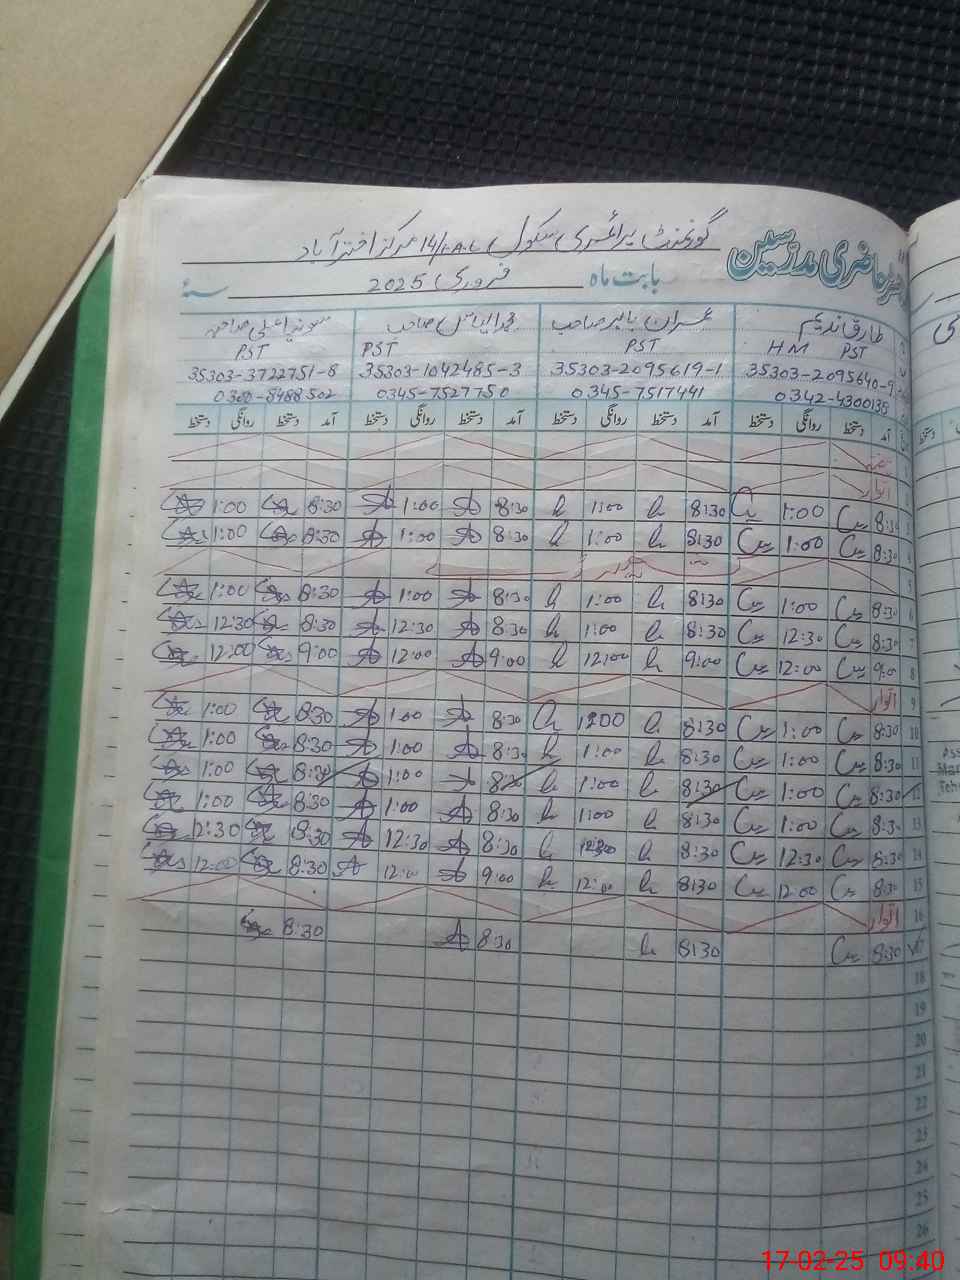 رجسٹر حاضری مدرسین
گورنمنٹ پرائمری سکول 14/1.A.L مرکز اختر آباد
بابت ماہ فروری 2025 سنہ
طارق ندیم عمران بابر صاحب محمد الیاس صاحب
HM PST PST PST PST
35303-2095640-9 35303-2095619-1 35303-1042485-3 35303-3722751-8
0342-4300135 0345-7517441 0345-7527750 0300-8488502
آمد دستخط روانگی دستخط آمد دستخط روانگی دستخط آمد دستخط روانگی دستخط آمد دستخط روانگی دستخط
اتوار
8:30 1:00 8:30 1:00 8:30 1:00 8:30 1:00
4 8:30 1:00 8:30 1:00 8:30 1:00 8:30 1:00
5
6 8:30 1:00 8:30 1:00 8:30 1:00 8:30 1:00
7 8:30 12:30 8:30 1:00 8:30 12:30 8:30 12:30
8 9:00 12:00 9:00 12:00 9:00 12:00 9:00 12:00
9 اتوار
10 8:30 1:00 8:30 1200 8:30 1:00 8:30 1:00
11 8:30 1:00 8:30 1:00 8:30 1:00 8:30 1:00
12 8:30 1:00 8:30 1:00 8:30 1:00 8:30 1:00
13 8:30 1:00 8:30 1:00 8:30 1:00 8:30 1:00
14 8:30 12:30 8:30 12:30 8:30 12:30 8:30 12:30
15 8:30 12:00 8:30 12:00 9:00 12:00 8:30 12:00
16 اتوار
8:30 8:30 8:30 8:30
18
19
20
21
22
23
24
25
26
17-02-25 09:40